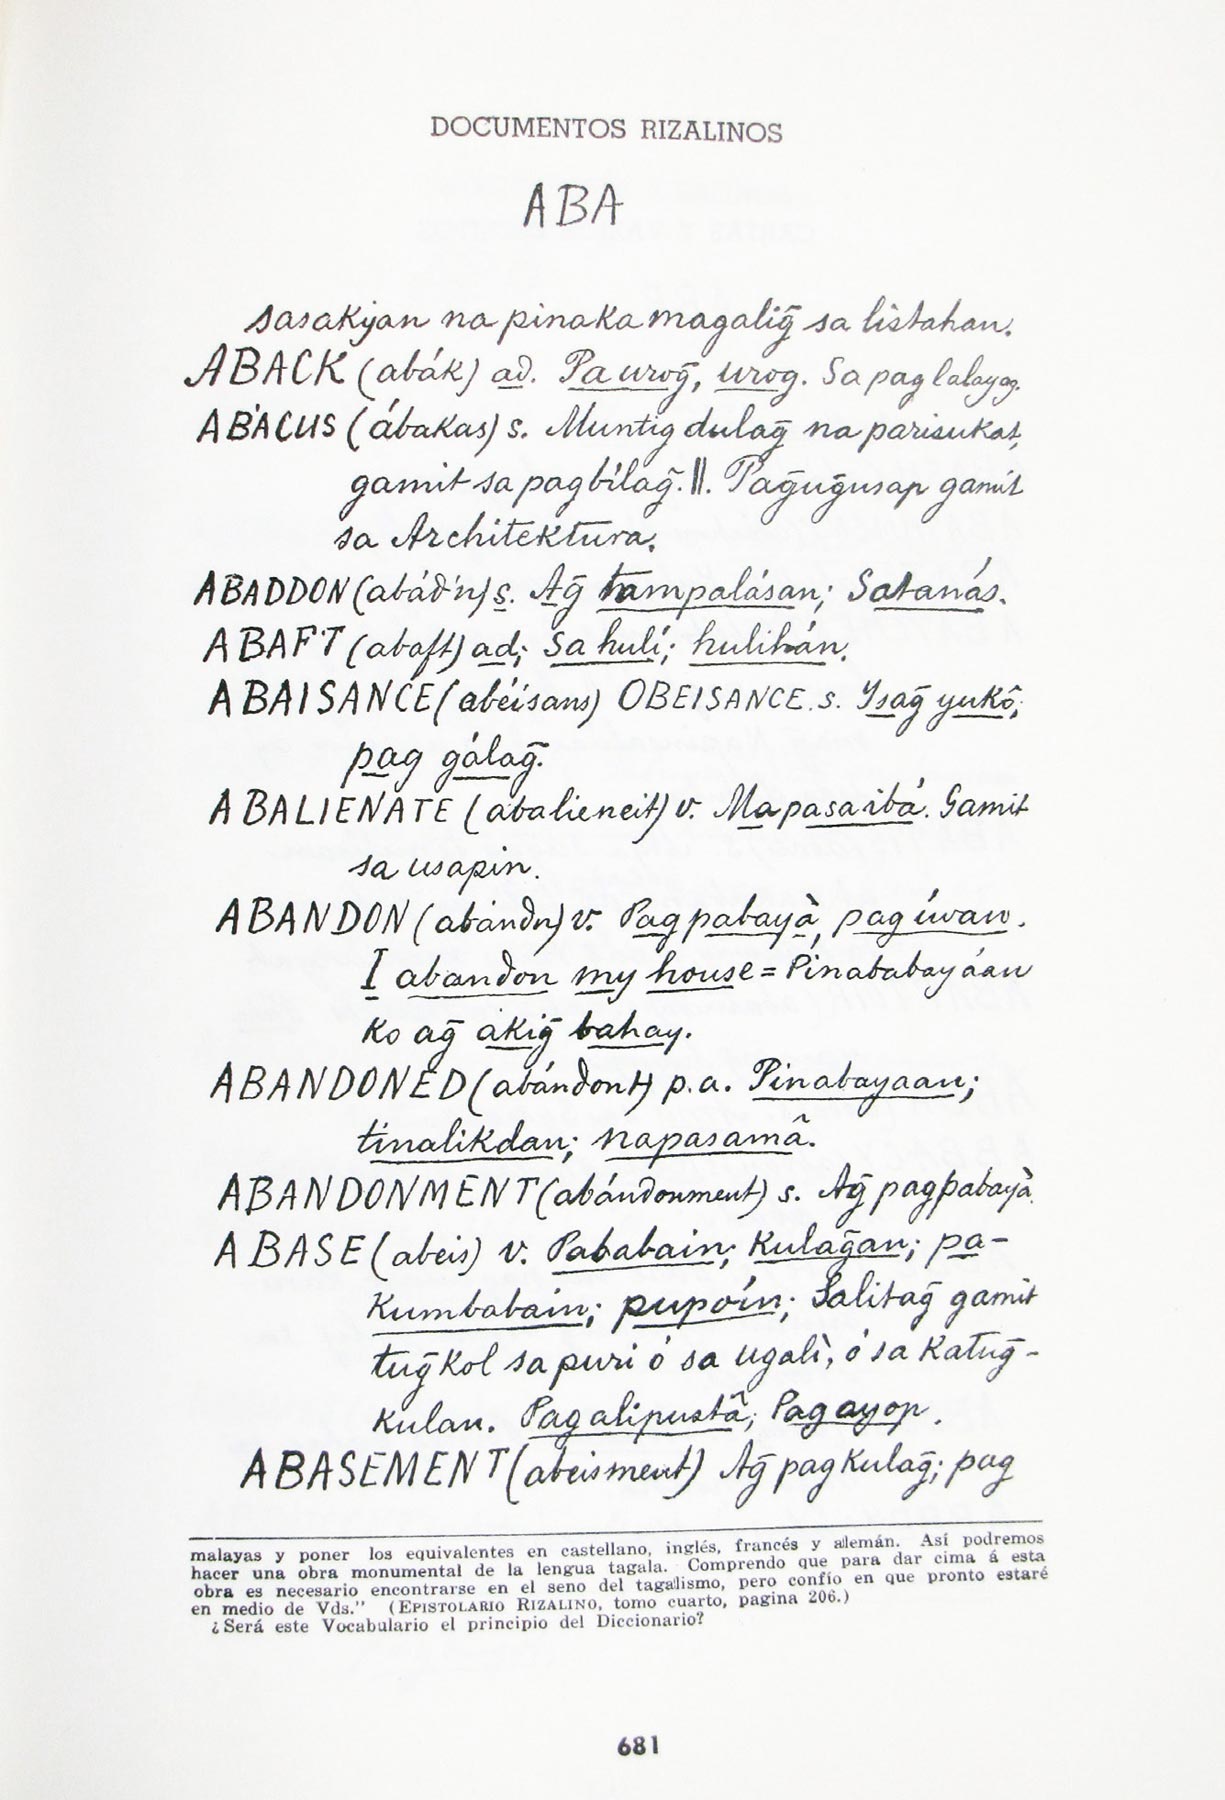 DOCUMENTOS RIZALINOS
ABA
sasakyan na pinaka magalig̃ sa listahan.
ABACK (abák) ad. Pa urog̃, urog. Sa pag lalayag.
ABACUS (ábakas) s. Muntig dulag̃ na parisukat,
gamit sa pagbílag̃. ||. Pag̃ug̃usap gamit
sa Architektura.
ABADDON (abád'n) s. Ag̃ tampalásan; Satanás.
ABAFT (abaft) ad; Sa hulí; hulihán.
ABAISANCE (abéisans) OBEISANCE. s. Ysag̃ yukô;
pag gálag̃.
ABALIENATE (abalieneit) v. Mapasaibá. Gamit
sa usapin.
ABANDON (abándn) v. Pagpabayà, pag íwan.
I abandon my house = Pinababayáan
ko ag̃ akig̃ bahay.
ABANDONED (abándont) p.a. Pinabayaan;
tinalikdan; napasamâ.
ABANDONMENT (abándonment) s. Ag̃ pagpabayà.
ABASE (abeis) v. Pababain; Kulag̃an; pa-
kumbabaín; pupoín; Salitag̃ gamit
tug̃kol sa puri ó sa ugalì, ó sa Katug̃-
kulan. Pagalipustâ; Pagayop.
ABASEMENT (abeisment) Ag̃ pagkulag̃; pag
malayas y poner los equivalentes en castellano, inglés, francés y alemán. Así podremos
hacer una obra monumental de la lengua tagala. Comprendo que para dar cima á esta
obra es necesario encontrarse en el seno del tagalismo, pero confío en que pronto estaré
en medio de Vds." (EPISTOLARIO RIZALINO, tomo cuarto, pagina 206.)
¿Será este Vocabulario el principio del Diccionario?
681